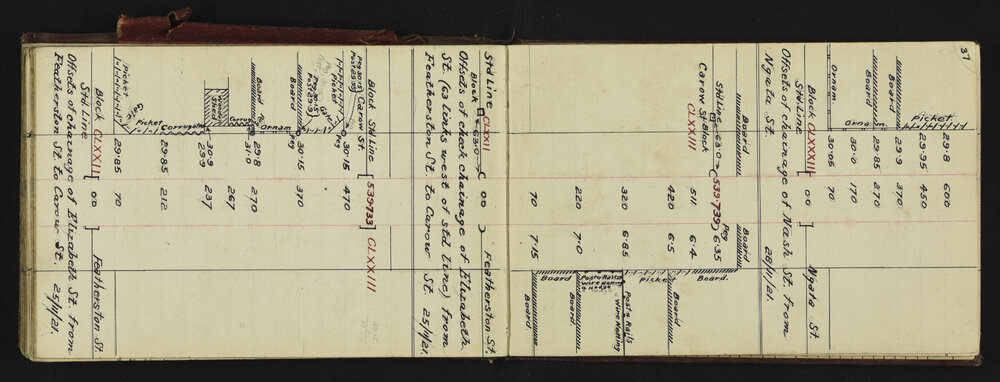 37
Picket 29.8 600
29.95 450
29.9 370
29.85 270
Ornam. 30.0 170
Ornam 30.05 70
Block CLXXXIII [00] Ngata St.
Std. Line
Offsets of chainage of Nash St. from
Ngata St. 28/11/21.
Board Board
Std Line 63.0 (539.739) Peg 6.35
Carow St. Block 511 6.4 Board.
CLXXIII
420 6.5 Picket Board
320 6.85 Post & Rails Wire Netting
220 7.0 Post & Rails Wire Netting & Hedge Board.
70 7.15 Board Board.
Std Line CLXXII 63.0 (00) Featherston St.
Block
Offsets of check chainage of Elizabeth
St. (63 links west of std line) from
Featherston St. to Carow St. 25/11/21.
Block Std Line [539.733] CLXXIII
Carow St.
Peg 30.15
Post 29.9
Picket 30.15 470
Gate
Peg 30.15
Post 29.9
Board. Peg 30.15 370
Ornam
Board 29.8 270
31.0
Corrug. 267
Wood Shed 30.9 237
29.9
Corrugated 29.85 212
Picket
Gate
Picket 29.85 70
Block CLXXII [00] Featherston St.
Std. Line
Offsets of chainage of Elizabeth St. from
Featherston St. to Carow St. 25/11/21.